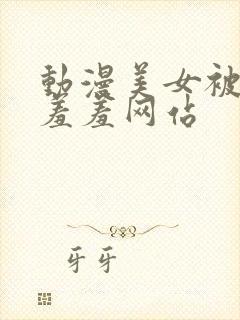 動漫美女被
羞羞网佔
牙牙